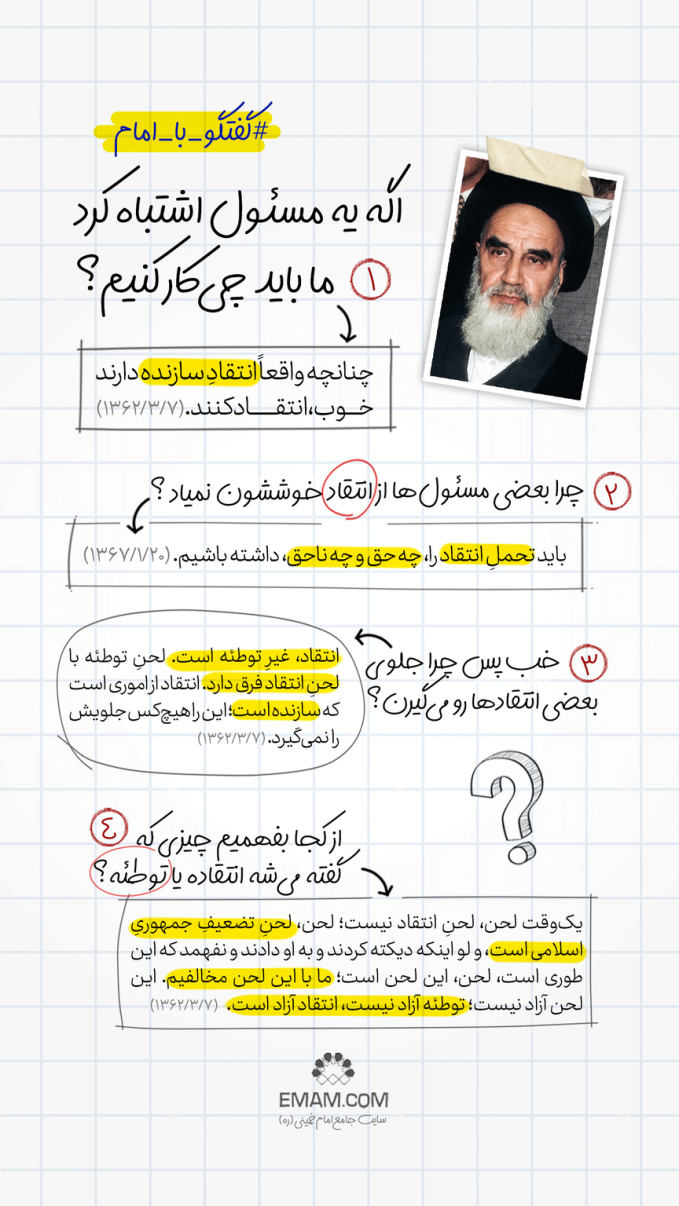 #گفتگو_با_امام
اگه یه مسئول اشتباه کرد
۱ ما باید چی کار کنیم؟
چنانچه واقعاً انتقادِ سازنده دارند
خوب، انتقاد کنند. (۱۳۶۲/۳/۷)
۲ چرا بعضی مسئول ها از انتقاد خوششون نمیاد؟
باید تحملِ انتقاد را، چه حق و چه ناحق، داشته باشیم. (۱۳۶۷/۱/۲۰)
۳ خب پس چرا جلوی
بعضی انتقادها رو می‌گیرن؟
انتقاد، غیرِ توطئه است. لحنِ توطئه با
لحنِ انتقاد فرق دارد. انتقاد از اموری است
که سازنده است؛ این را هیچ‌کس جلویش
را نمی‌گیرد. (۱۳۶۲/۳/۷)
۴ از کجا بفهمیم چیزی که
گفته می‌شه انتقاده یا توطئه؟
یک‌وقت لحن، لحنِ انتقاد نیست؛ لحن، لحنِ تضعیفِ جمهوریِ
اسلامی است، و لو اینکه دیکته کردند و به او دادند و نفهمد که این
طوری است، لحن، این لحن است؛ ما با این لحن مخالفیم. این
لحن آزاد نیست؛ توطئه آزاد نیست، انتقاد آزاد است. (۱۳۶۲/۳/۷)
EMAM.COM
سایت جامع امام خمینی (ره)